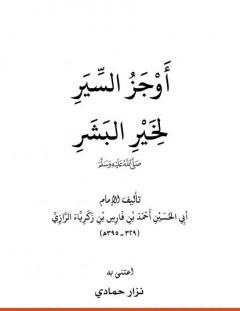 أَوْجَزُ السِّيَرِ
لِخَيْرِ البَشَرِ
صَلَّى اللَّهُ عَلَيْهِ وَسَلَّمَ
تأليف الإمام
أَبِي الحُسَيْنِ أَحْمَدَ بْنِ فَارِسِ بْنِ زَكَرِيَّاءَ الرَّازِيِّ
(٣٢٩ - ٣٩٥ هـ)
اعتنى به
نزار حمادي